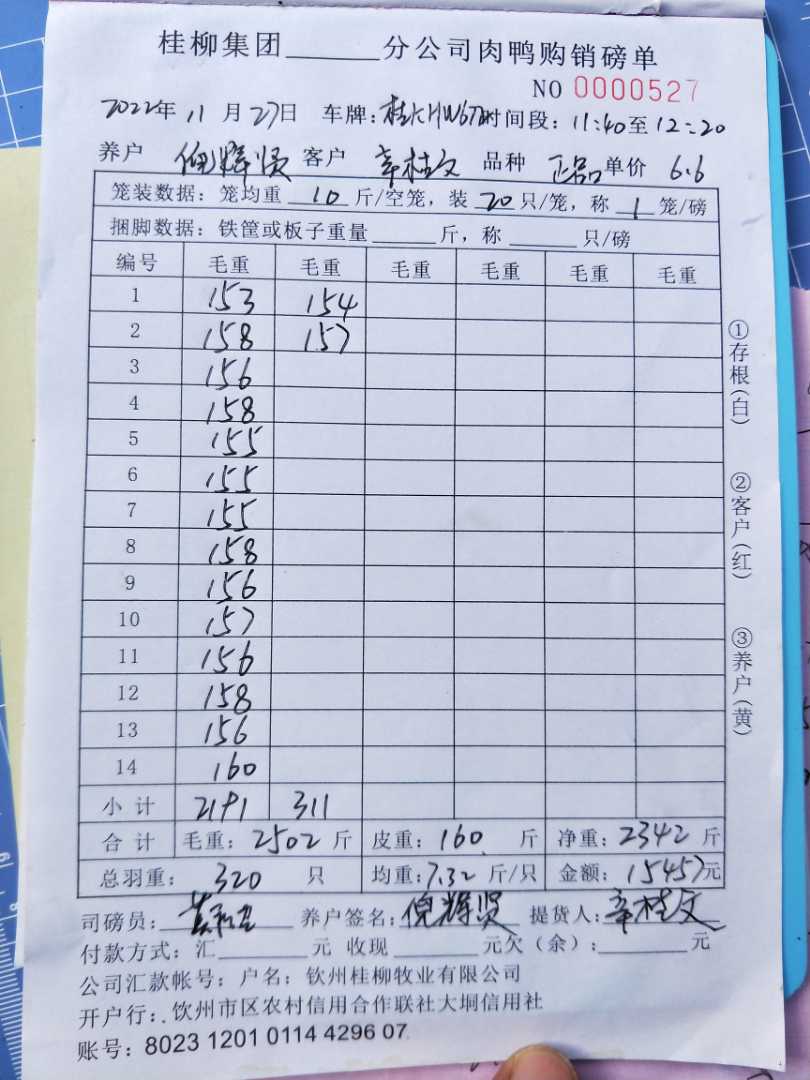 桂柳集团______分公司肉鸭购销磅单
NO 0000527
2022年 11 月 27日 车牌: 时间段: 11:40至12:20
养户 倪辉贤 客户 辛桂文 品种 正品 单价 6.6
笼装数据: 笼均重 10 斤/空笼, 装 20 只/笼, 称 1 笼/磅
捆脚数据: 铁筐或板子重量______斤, 称______只/磅
编号 毛重 毛重 毛重 毛重 毛重 毛重
1 153 154
2 158 157
3 156
4 158
5 155
6 155
7 155
8 158
9 156
10 157
11 156
12 158
13 156
14 160
小计 2191 311
合计 毛重: 2502 斤 皮重: 160 斤 净重: 2342 斤
总羽重: 320 只 均重: 7.32 斤/只 金额: 15457元
司磅员: 养户签名: 倪辉贤 提货人: 辛桂文
付款方式: 汇______元 收现______元欠(余): ______元
公司汇款帐号: 户名: 钦州桂柳牧业有限公司
开户行: 钦州市区农村信用合作联社大垌信用社
账号: 8023 1201 0114 4296 07
①存根(白) ②客户(红) ③养户(黄)